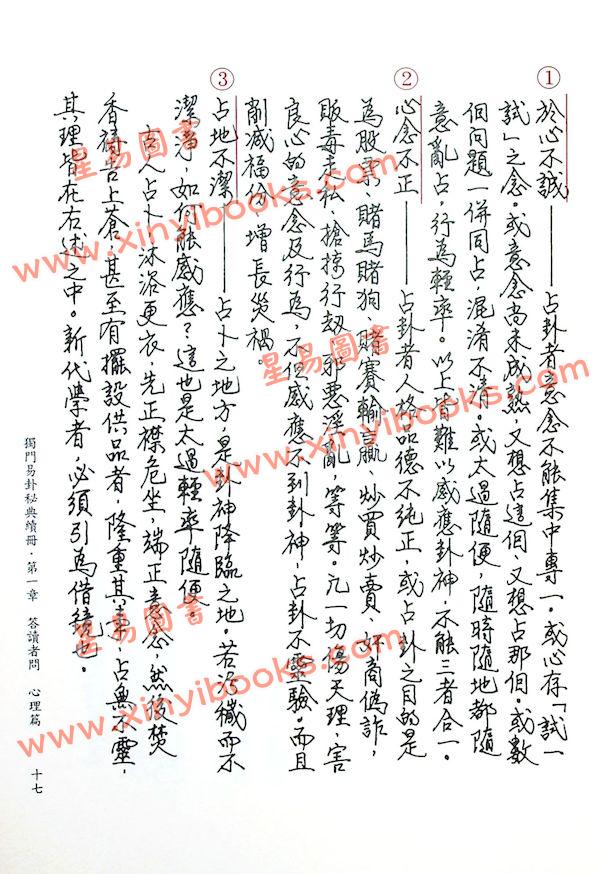 ①於心不誠——占卦者意念不能集中專一。或心存「試一
試」之念。或意念尚未成熟，又想占這個、又想占那個。或數
個問題一併同占，混淆不清。或太過隨便，隨時隨地都隨
意亂占，行為輕率。以上皆難以感應卦神，不能三者合一。
②心念不正——占卦者人格品德不純正，或占卦之目的是
為股票、賭馬賭狗、賭賽輸贏、炒買炒賣、奸商偽詐，
販毒走私、搶掠行劫、邪惡淫亂，等等。凡一切傷天理，害
良心的意念及行為，不但感應不到卦神，占卦不靈驗。而且
削減福份，增長災禍。
③占地不潔——占卜之地方，是卦神降臨之地。若污穢而不
潔淨，如何能感應？這也是太過輕率隨便。
古人占卜，沐浴更衣，先正襟危坐，端正意念，然後焚
香禱告上蒼，甚至有擺設供品者，隆重其事，占無不靈，
其理皆在右述之中。新代學者，必須引為借鏡也。
獨門易卦秘典續冊·第一章 答讀者問 心理篇 十七
星易圖書
www.xinyibooks.com
星易圖書
www.xinyibooks.com
星易圖書
www.xinyibooks.com